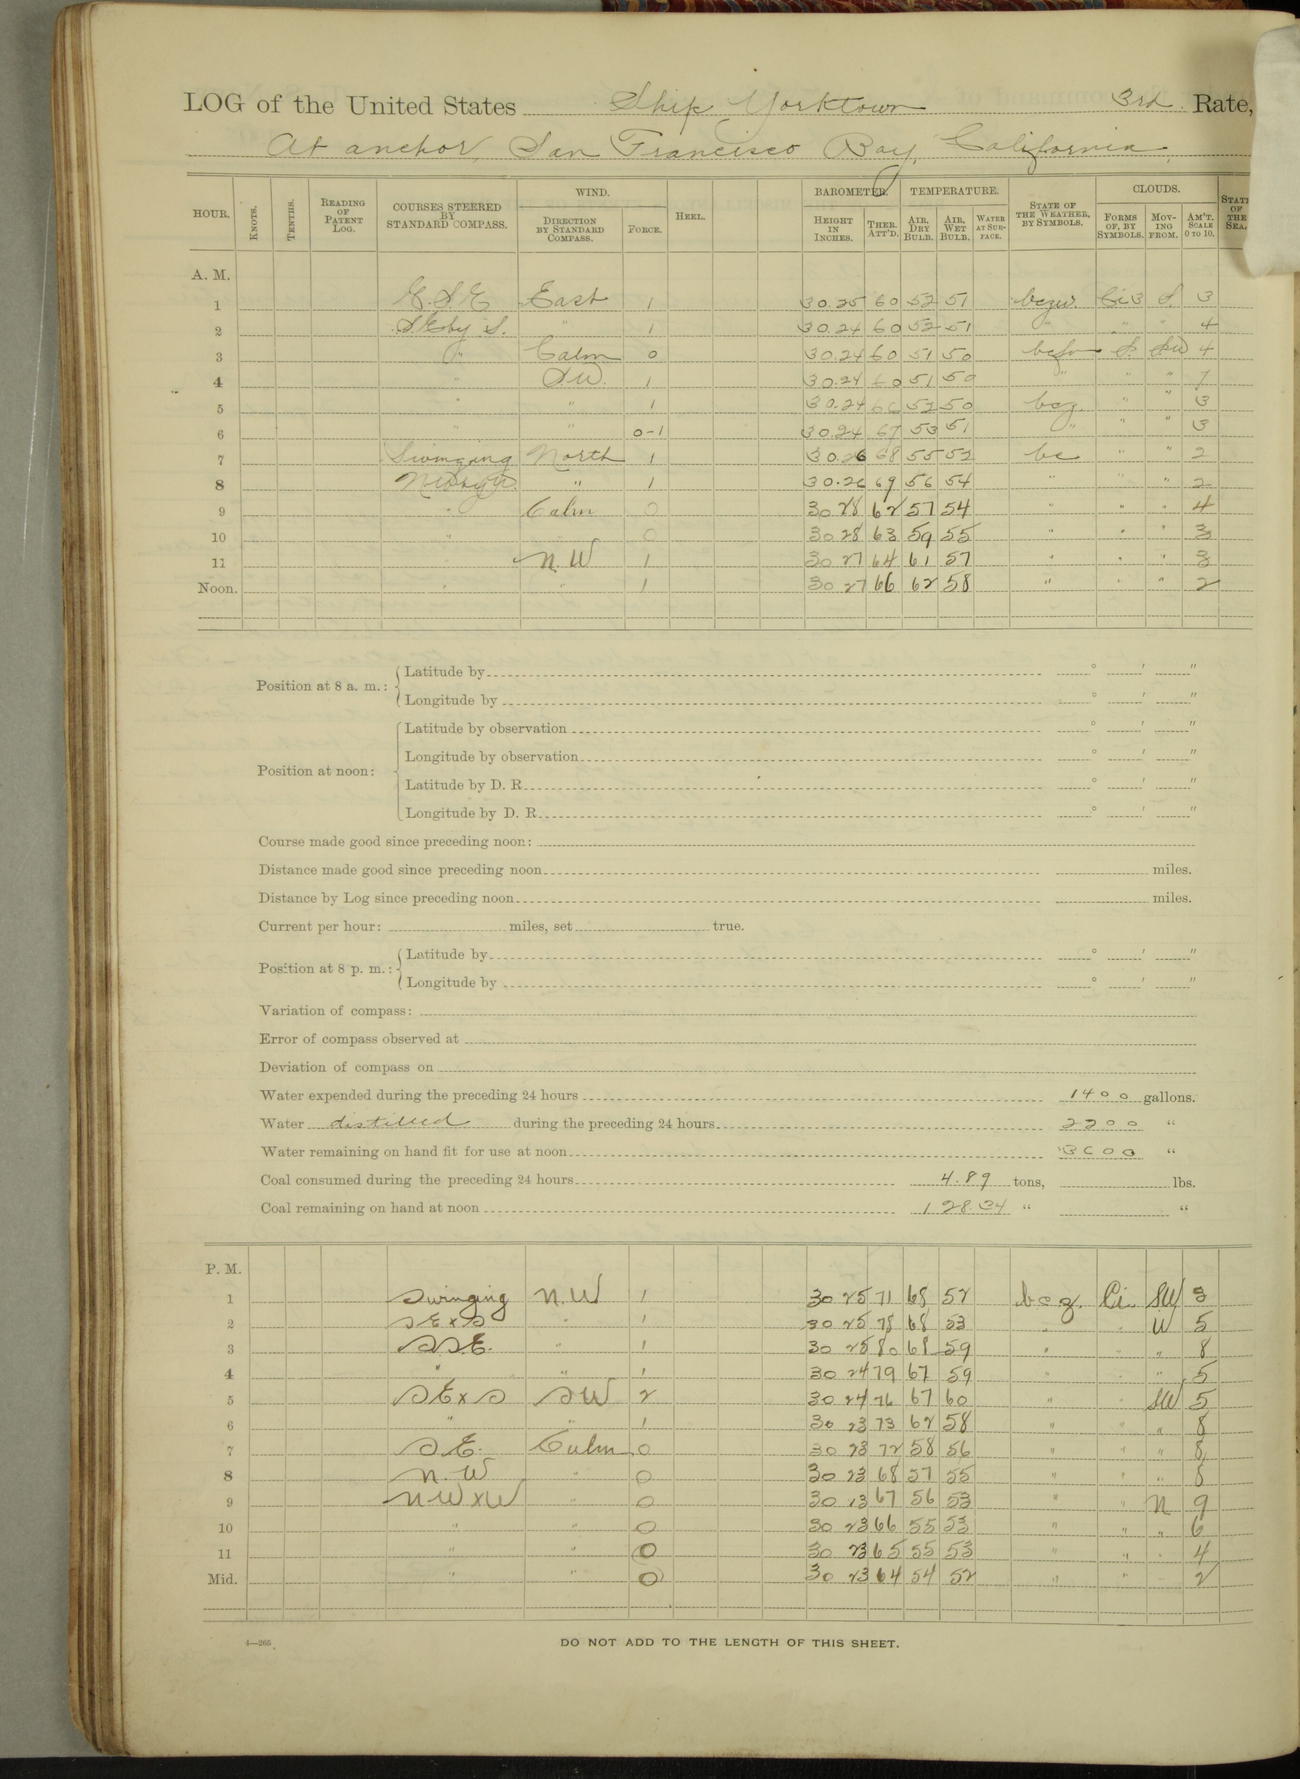 LOG of the United States Ship Yorktown 3rd Rate,
At anchor, San Francisco Bay, California.
HOUR. KNOTS. TENTHS. READING OF PATENT LOG. COURSES STEERED BY STANDARD COMPASS. WIND. DIRECTION BY STANDARD COMPASS. FORCE. HEEL. BAROMETER. HEIGHT IN INCHES. THER. ATT'D. TEMPERATURE. AIR, DRY BULB. AIR, WET BULB. WATER AT SURFACE. STATE OF THE WEATHER, BY SYMBOLS. CLOUDS. FORMS OF, BY SYMBOLS. MOVING FROM. AM'T. SCALE 0 TO 10. STATE OF THE SEA.
A. M.
1 E.S.E East 1 30.25 60 52 51 Ci S 3
2 S.E by S. " 1 30.24 60 52 51 " " " 4
3 " Calm 0 30.24 60 51 50 S. SW 4
4 " SW. 1 30.24 60 51 50 " " " 7
5 " " 1 30.24 66 52 50 bcz. " " 3
6 " " 0-1 30.24 67 53 51 " " " 3
7 Swinging North 1 30.26 68 55 52 bc " " 2
8 " 1 30.26 69 56 54 " " " 2
9 " Calm 0 30 28 62 57 54 " " " 4
10 " 0 30 28 63 59 55 " " " 3
11 N. W 1 30 27 64 61 57 " " " 3
Noon. " " 1 30 27 66 62 58 " " " 2
Position at 8 a. m.: Latitude by ° ' "
Longitude by ° ' "
Position at noon: Latitude by observation ° ' "
Longitude by observation ° ' "
Latitude by D. R. ° ' "
Longitude by D. R. ° ' "
Course made good since preceding noon:
Distance made good since preceding noon miles.
Distance by Log since preceding noon miles.
Current per hour: miles, set true.
Position at 8 p. m.: Latitude by ° ' "
Longitude by ° ' "
Variation of compass:
Error of compass observed at
Deviation of compass on
Water expended during the preceding 24 hours 1400 gallons.
Water distilled during the preceding 24 hours 2200 "
Water remaining on hand fit for use at noon 3600 "
Coal consumed during the preceding 24 hours 4.89 tons, lbs.
Coal remaining on hand at noon 128.34 " "
P. M.
1 Swinging N.W 1 30 25 71 68 52 bcz. Ci. SW 3
2 SExS " 1 30 25 78 68 53 " " W 5
3 S.S.E. " 1 30 25 80 68 59 " " " 8
4 " " 1 30 24 79 67 59 " " " 5
5 SExS SW 2 30 24 76 67 60 " " SW 5
6 " " 1 30 23 73 62 58 " " " 8
7 S.E. Calm 0 30 23 72 58 56 " " " 8
8 N. W " 0 30 23 68 57 55 " " " 8
9 NWxW " 0 30 23 67 56 53 " " N 9
10 " " 0 30 23 66 55 53 " " " 6
11 " " 0 30 23 65 55 53 " " " 4
Mid. " " 0 30 23 64 54 52 " " 2
4—265
DO NOT ADD TO THE LENGTH OF THIS SHEET.